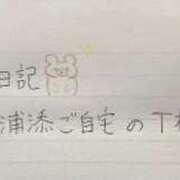 日記
浦添ご自宅のT